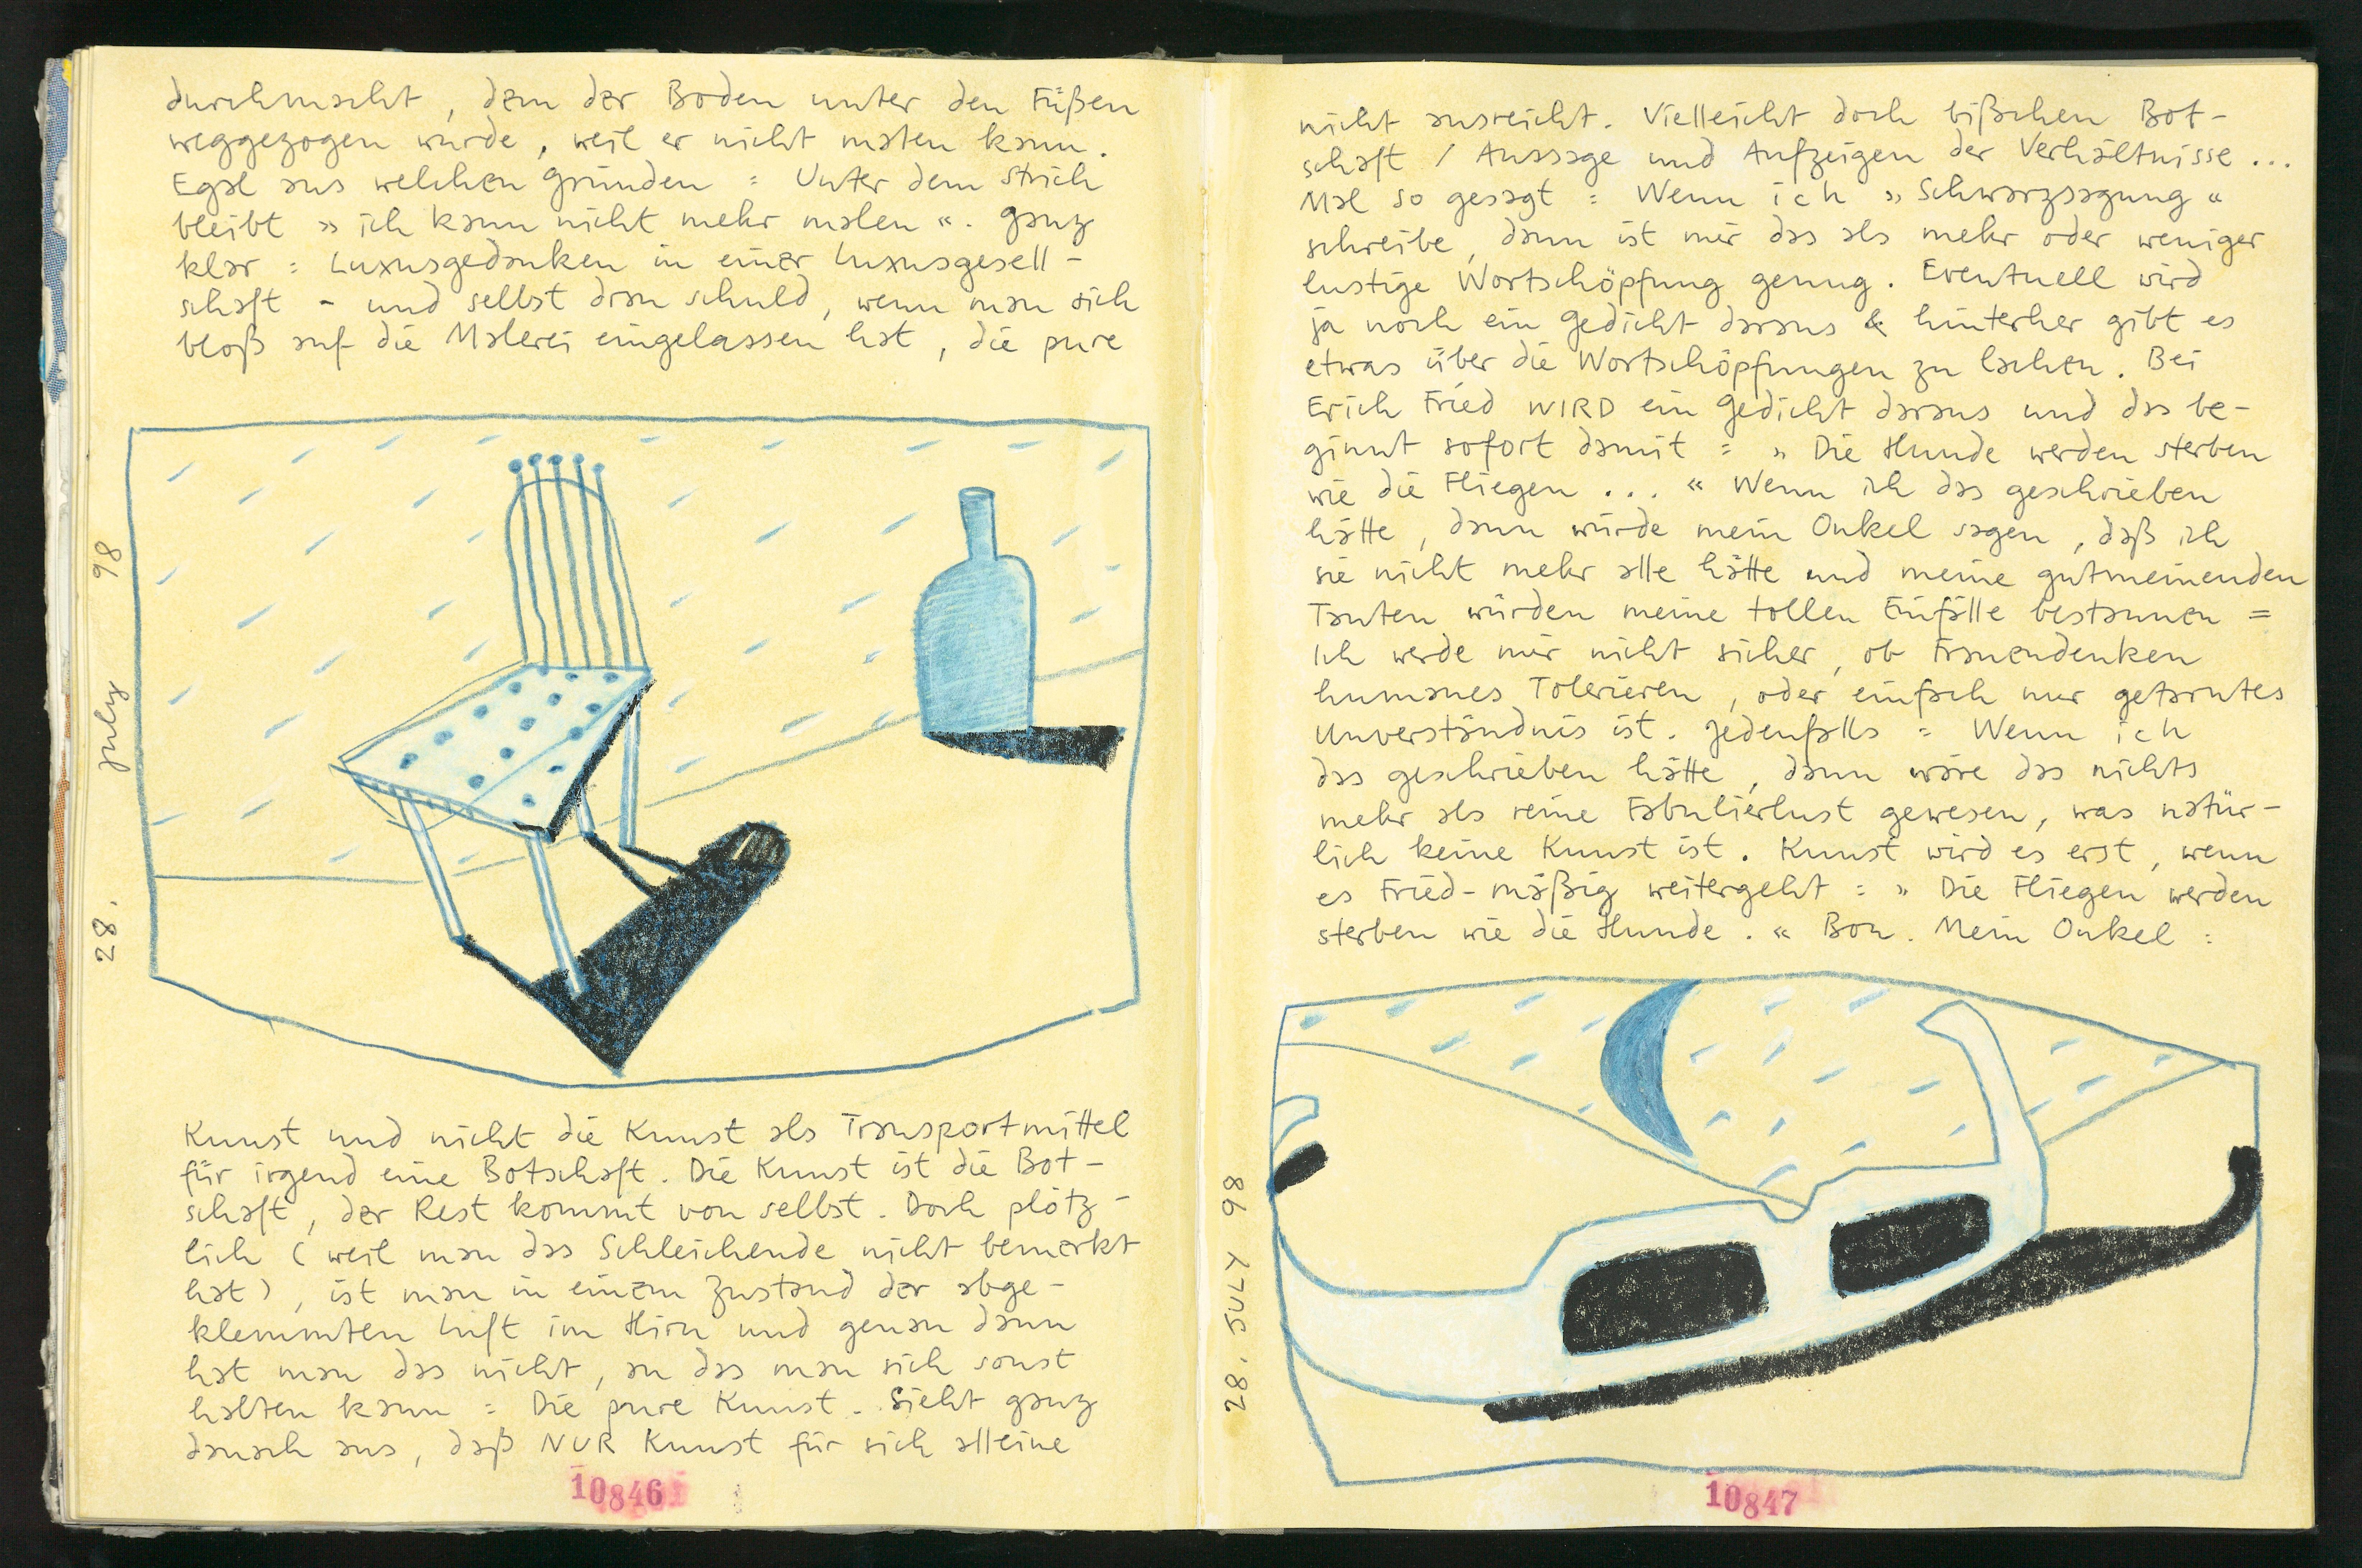 durchmacht, dem der Boden unter den Füßen
weggezogen wurde, weil er nicht malen kann.
Egal aus welchen Gründen = Unter dem Strich
bleibt » ich kann nicht mehr malen «. Ganz
klar = Luxusgedanken in einer Luxusgesell-
schaft - und selbst dran schuld, wenn man sich
bloß auf die Malerei eingelassen hat, die pure
28. July 98
Kunst und nicht die Kunst als Transportmittel
für irgend eine Botschaft. Die Kunst ist die Bot-
schaft, der Rest kommt von selbst. Doch plötz-
lich (weil man das Schleichende nicht bemerkt
hat), ist man in einem Zustand der abge-
klemmten Luft im Hirn und genau dann
hat man das nicht, an das man sich sonst
halten kann = Die pure Kunst. Sieht ganz
danach aus, daß NUR Kunst für sich alleine
10846
nicht ausreicht. Vielleicht doch bißchen Bot-
schaft / Aussage und Aufzeigen der Verhältnisse ...
Mal so gesagt = Wenn ich » Schwarzsagung «
schreibe, dann ist mir das als mehr oder weniger
lustige Wortschöpfung genug. Eventuell wird
ja noch ein Gedicht daraus & hinterher gibt es
etwas über die Wortschöpfungen zu lachen. Bei
Erich Fried WIRD ein Gedicht daraus und das be-
ginnt sofort damit = » Die Hunde werden sterben
wie die Fliegen ... « Wenn ich das geschrieben
hätte, dann würde mein Onkel sagen, daß ich
sie nicht mehr alle hätte und meine gutmeinenden
Tanten würden meine tollen Einfälle bestaunen =
Ich werde mir nicht sicher, ob Frauendenken
humanes Tolerieren, oder einfach nur getarntes
Unverständnis ist. Jedenfalls = Wenn ich
das geschrieben hätte, dann wäre das nichts
mehr als reine Fabulierlust gewesen, was natür-
lich keine Kunst ist. Kunst wird es erst, wenn
es Fried-mäßig weitergeht = » Die Fliegen werden
sterben wie die Hunde. « Bon. Mein Onkel =
28. JULY 98
10847